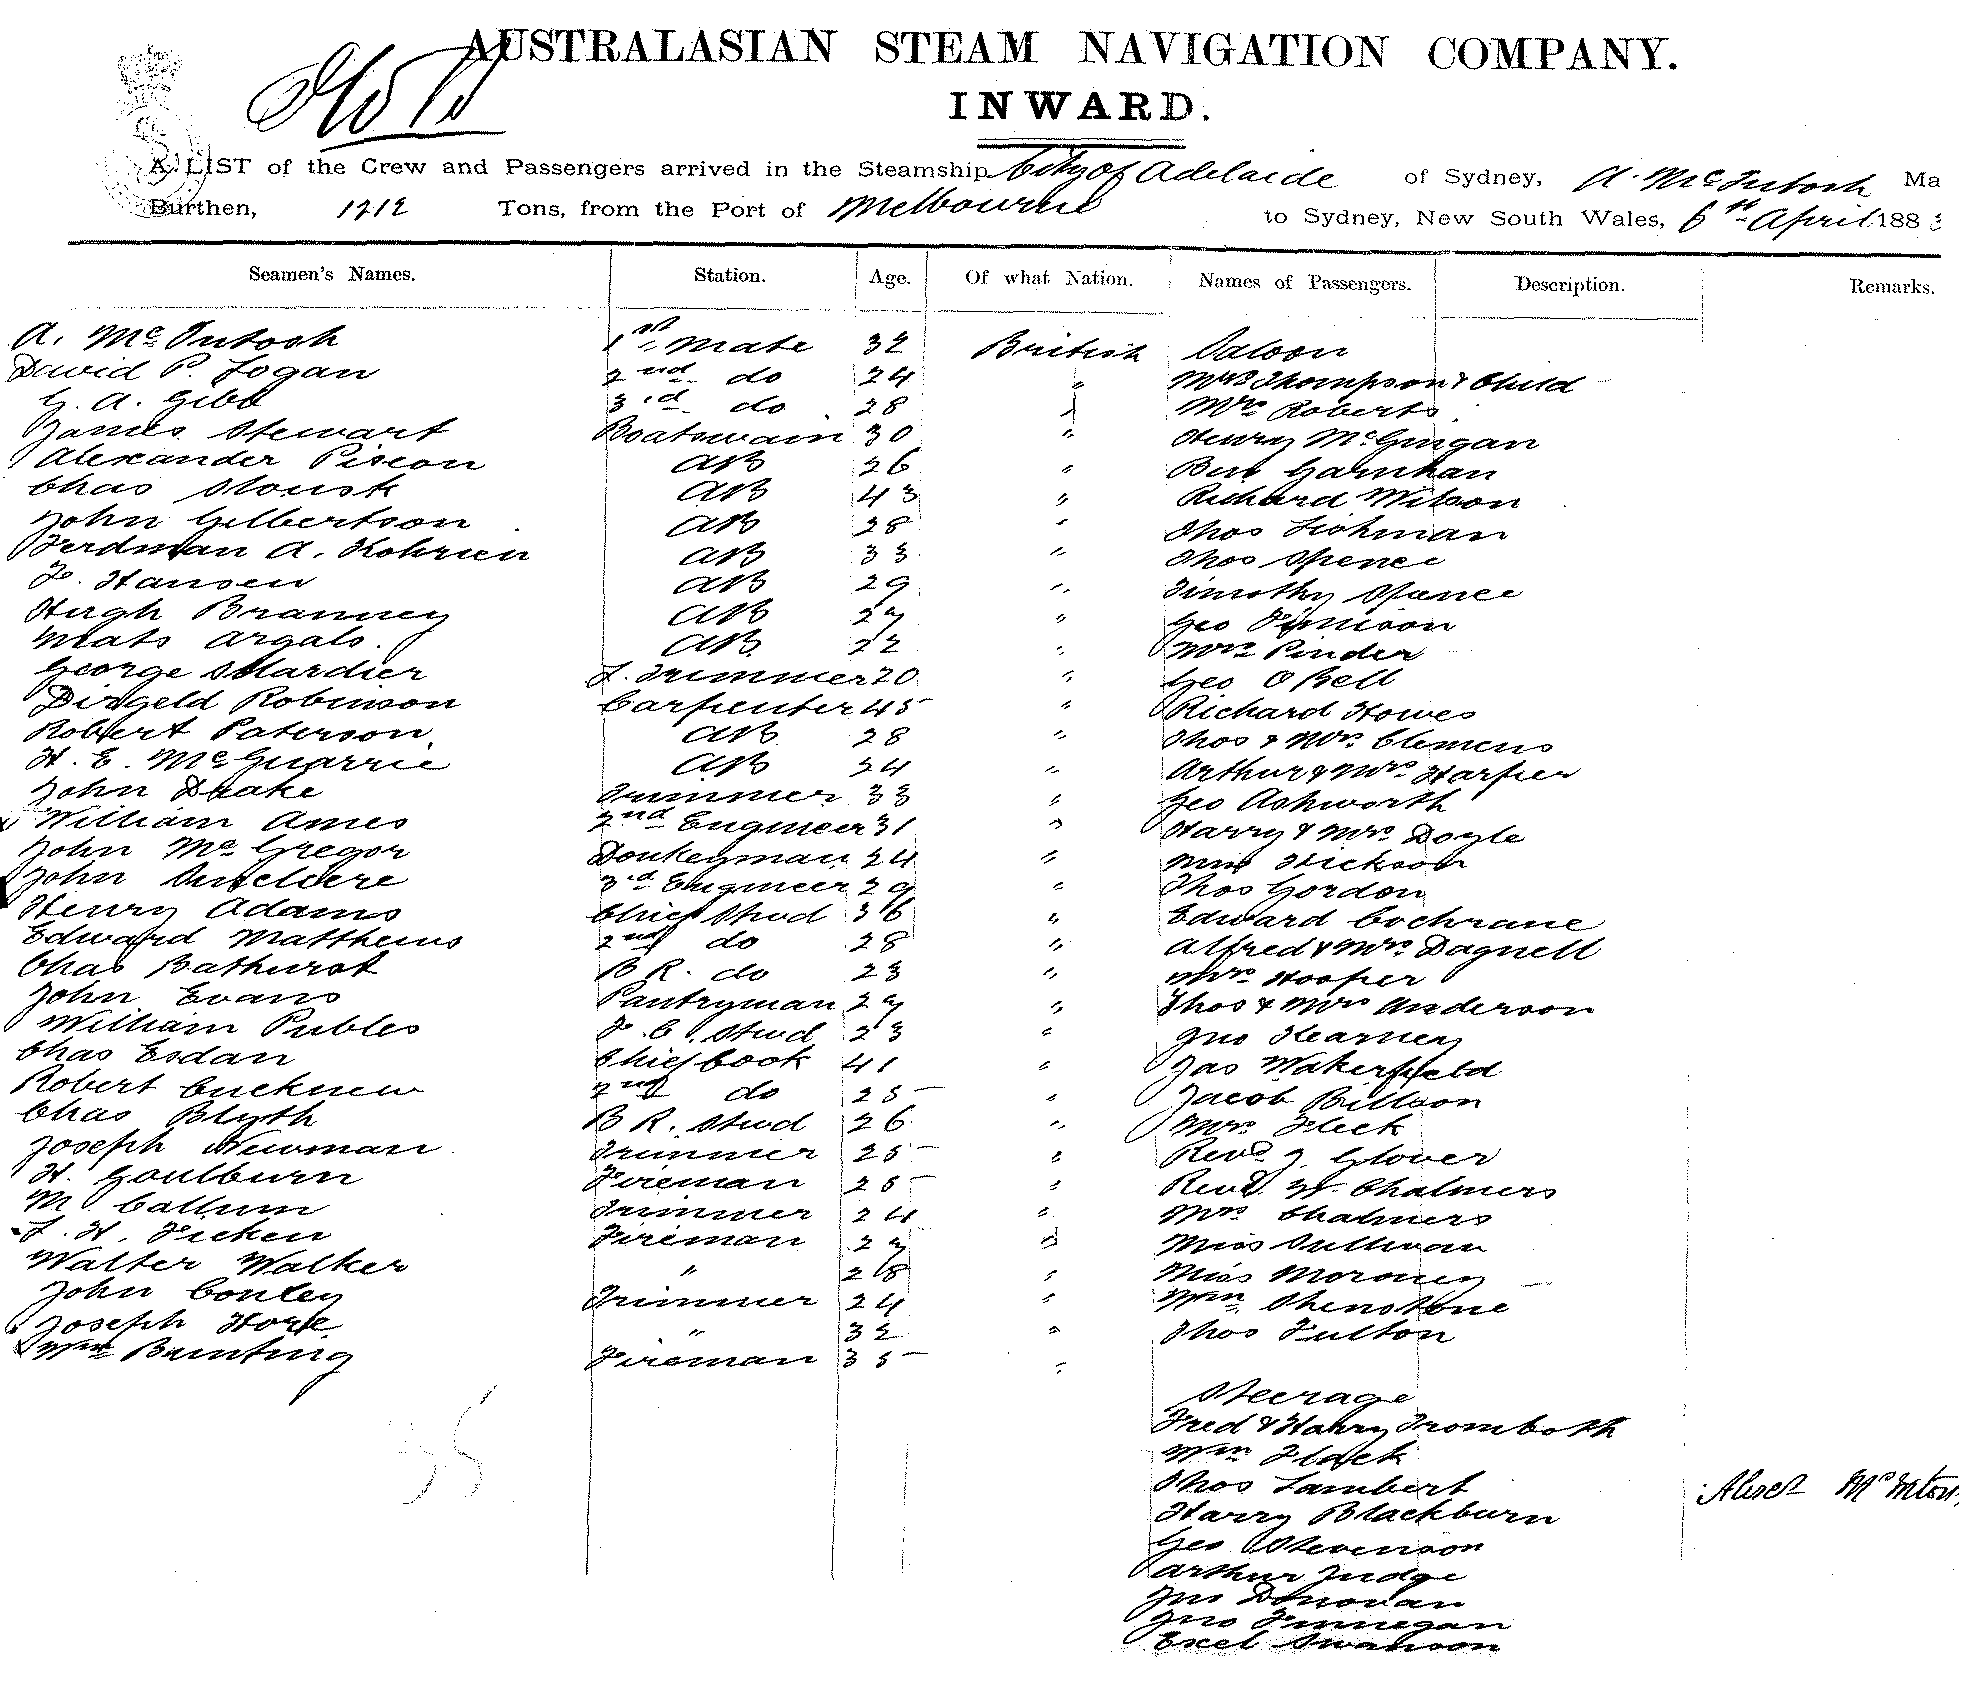 AUSTRALASIAN STEAM NAVIGATION COMPANY.
INWARD.
A LIST of the Crew and Passengers arrived in the Steamship City of Adelaide of Sydney, A. McIntosh Ma
Burthen, 1212 Tons, from the Port of Melbourne to Sydney, New South Wales, 6th April 188
Seamen's Names. Station. Age. Of what Nation. Names of Passengers. Description. Remarks.
A. McIntosh 1st mate 32 British Saloon
David P. Logan 2nd do 24 " Mrs Thompson & Child
G. A. Gibb 3rd do 28 " Mrs Roberts
James Stewart Boatswain 30 " Henry McGingan
Alexander Piscon AB 26 " Garnhan
Chas AB 43 " Richard Wilson
John Gilbertson AB 28 " Thos Lishman
A. AB 33 " Thos Spence
Hansen AB 29 " Timothy Spence
Hugh Branney AB 27 " Geo
Mats Argals. AB 22 " Mrs Pinder
George Mardier Trimmer 20 " Geo O Bell
Robinson Carpenter 45 " Richard Howes
Robert Paterson AB 28 " Thos & Mrs Clemens
H. E. McQuarrie AB 24 " Arthur & Mrs Harper
John Drake Trimmer 33 " Geo Ashworth
William Ames 2nd Engineer 31 " Harry & Mrs Doyle
John McGregor Donkeyman 24 " Miss Hickson
John 3rd Engineer 29 " Thos Gordon
Henry Adams Chief Stwd 36 " Edward Cochrane
Edward Matthews 2nd do 28 " Alfred & Mrs Dagnell
Chas Bathurst B R. do 23 " Mrs Hooper
John Evans Pantryman 27 " Thos & Mrs Anderson
William Publes F. C. Stwd 23 " Jno Kearney
Chas Esdan Chief Cook 41 " Jas Wakerfield
Robert 2nd do 25 " Jacob Billson
Chas Blyth B R. Stwd 26 " Mrs Fleck
Joseph Newman Trimmer 25 " Revd J. Glover
H. Goulburn Fireman 25 " Revd W. Chalmers
M Callum Trimmer 24 " Mrs Chalmers
H. Ficken Fireman 27 " Miss Sullivan
Walter Walker " 28 " Miss Moroney
John Conley Trimmer 24 " Wm Shenstone
Joseph Hore " 32 " Thos Fulton
Wm Bunting Fireman 35 "
Steerage
Fred & Harry Tromboth
Wm Flack
Thos Lambert
Harry Blackburn
Geo Stevenson
Arthur Judge
Jno Donovan
Jno Finnegan
Excel Swanson
35